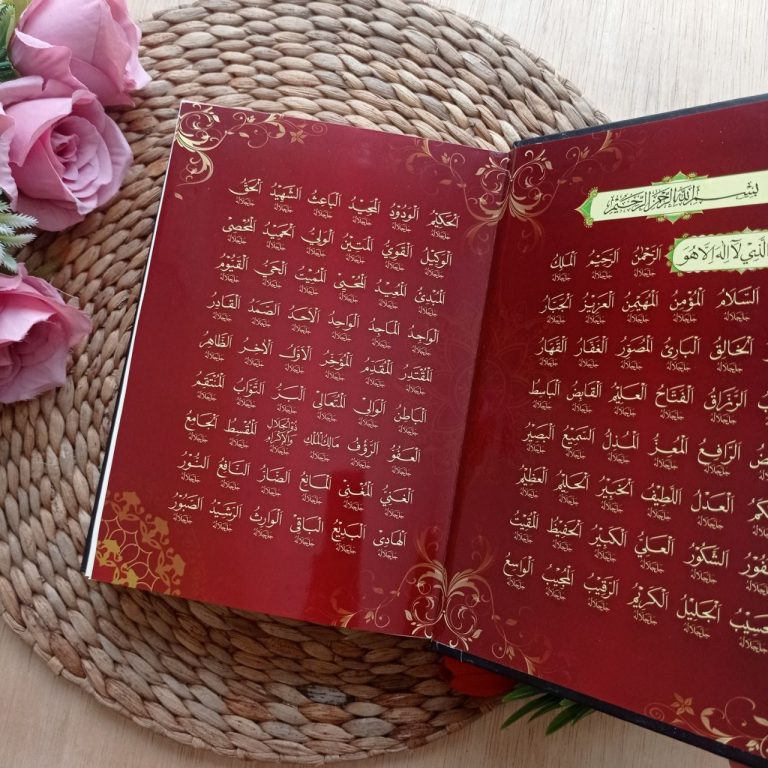 بِسْمِ اللهِ الرَّحْمٰنِ الرَّحِيْمِ
الَّذِيْ لَآ اِلٰهَ اِلَّا هُوَ
اَلرَّحْمٰنُ اَلرَّحِيْمُ اَلْمَلِكُ
اَلسَّلَامُ اَلْمُؤْمِنُ اَلْمُهَيْمِنُ اَلْعَزِيْزُ اَلْجَبَّارُ
اَلْخَالِقُ اَلْبَارِئُ اَلْمُصَوِّرُ اَلْغَفَّارُ اَلْقَهَّارُ
اَلرَّزَّاقُ اَلْفَتَّاحُ اَلْعَلِيْمُ اَلْقَابِضُ اَلْبَاسِطُ
اَلرَّافِعُ اَلْمُعِزُّ اَلْمُذِلُّ اَلسَّمِيْعُ اَلْبَصِيْرُ
اَلْعَدْلُ اَللَّطِيْفُ اَلْخَبِيْرُ اَلْحَلِيْمُ اَلْعَظِيْمُ
اَلشَّكُوْرُ اَلْعَلِيُّ اَلْكَبِيْرُ اَلْحَفِيْظُ اَلْمُقِيْتُ
اَلْجَلِيْلُ اَلْكَرِيْمُ اَلرَّقِيْبُ اَلْمُجِيْبُ اَلْوَاسِعُ
اَلْحَكِيْمُ اَلْوَدُوْدُ اَلْمَجِيْدُ اَلْبَاعِثُ اَلشَّهِيْدُ اَلْحَقُّ
اَلْوَكِيْلُ اَلْقَوِيُّ اَلْمَتِيْنُ اَلْوَلِيُّ اَلْحَمِيْدُ اَلْمُحْصِيْ
اَلْمُبْدِئُ اَلْمُعِيْدُ اَلْمُحْيِيْ اَلْمُمِيْتُ اَلْحَيُّ اَلْقَيُّوْمُ
اَلْوَاجِدُ اَلْمَاجِدُ اَلْوَاحِدُ اَلْاَحَدُ اَلصَّمَدُ اَلْقَادِرُ
اَلْمُقْتَدِرُ اَلْمُقَدِّمُ اَلْمُؤَخِّرُ اَلْاَوَّلُ اَلْاٰخِرُ اَلظَّاهِرُ
اَلْبَاطِنُ اَلْوَالِيْ اَلْمُتَعَالِيْ اَلْبَرُّ اَلتَّوَّابُ اَلْمُنْتَقِمُ
اَلْعَفُوُّ اَلرَّؤُفُ مَالِكُ الْمُلْكِ ذُوالْجَلَالِ وَالْاِكْرَامِ اَلْمُقْسِطُ اَلْجَامِعُ
اَلْغَنِيُّ اَلْمُغْنِيْ اَلْمَانِعُ اَلضَّارُّ اَلنَّافِعُ اَلنُّوْرُ
اَلْهَادِيْ اَلْبَدِيْعُ اَلْبَاقِيْ اَلْوَارِثُ اَلرَّشِيْدُ اَلصَّبُوْرُ